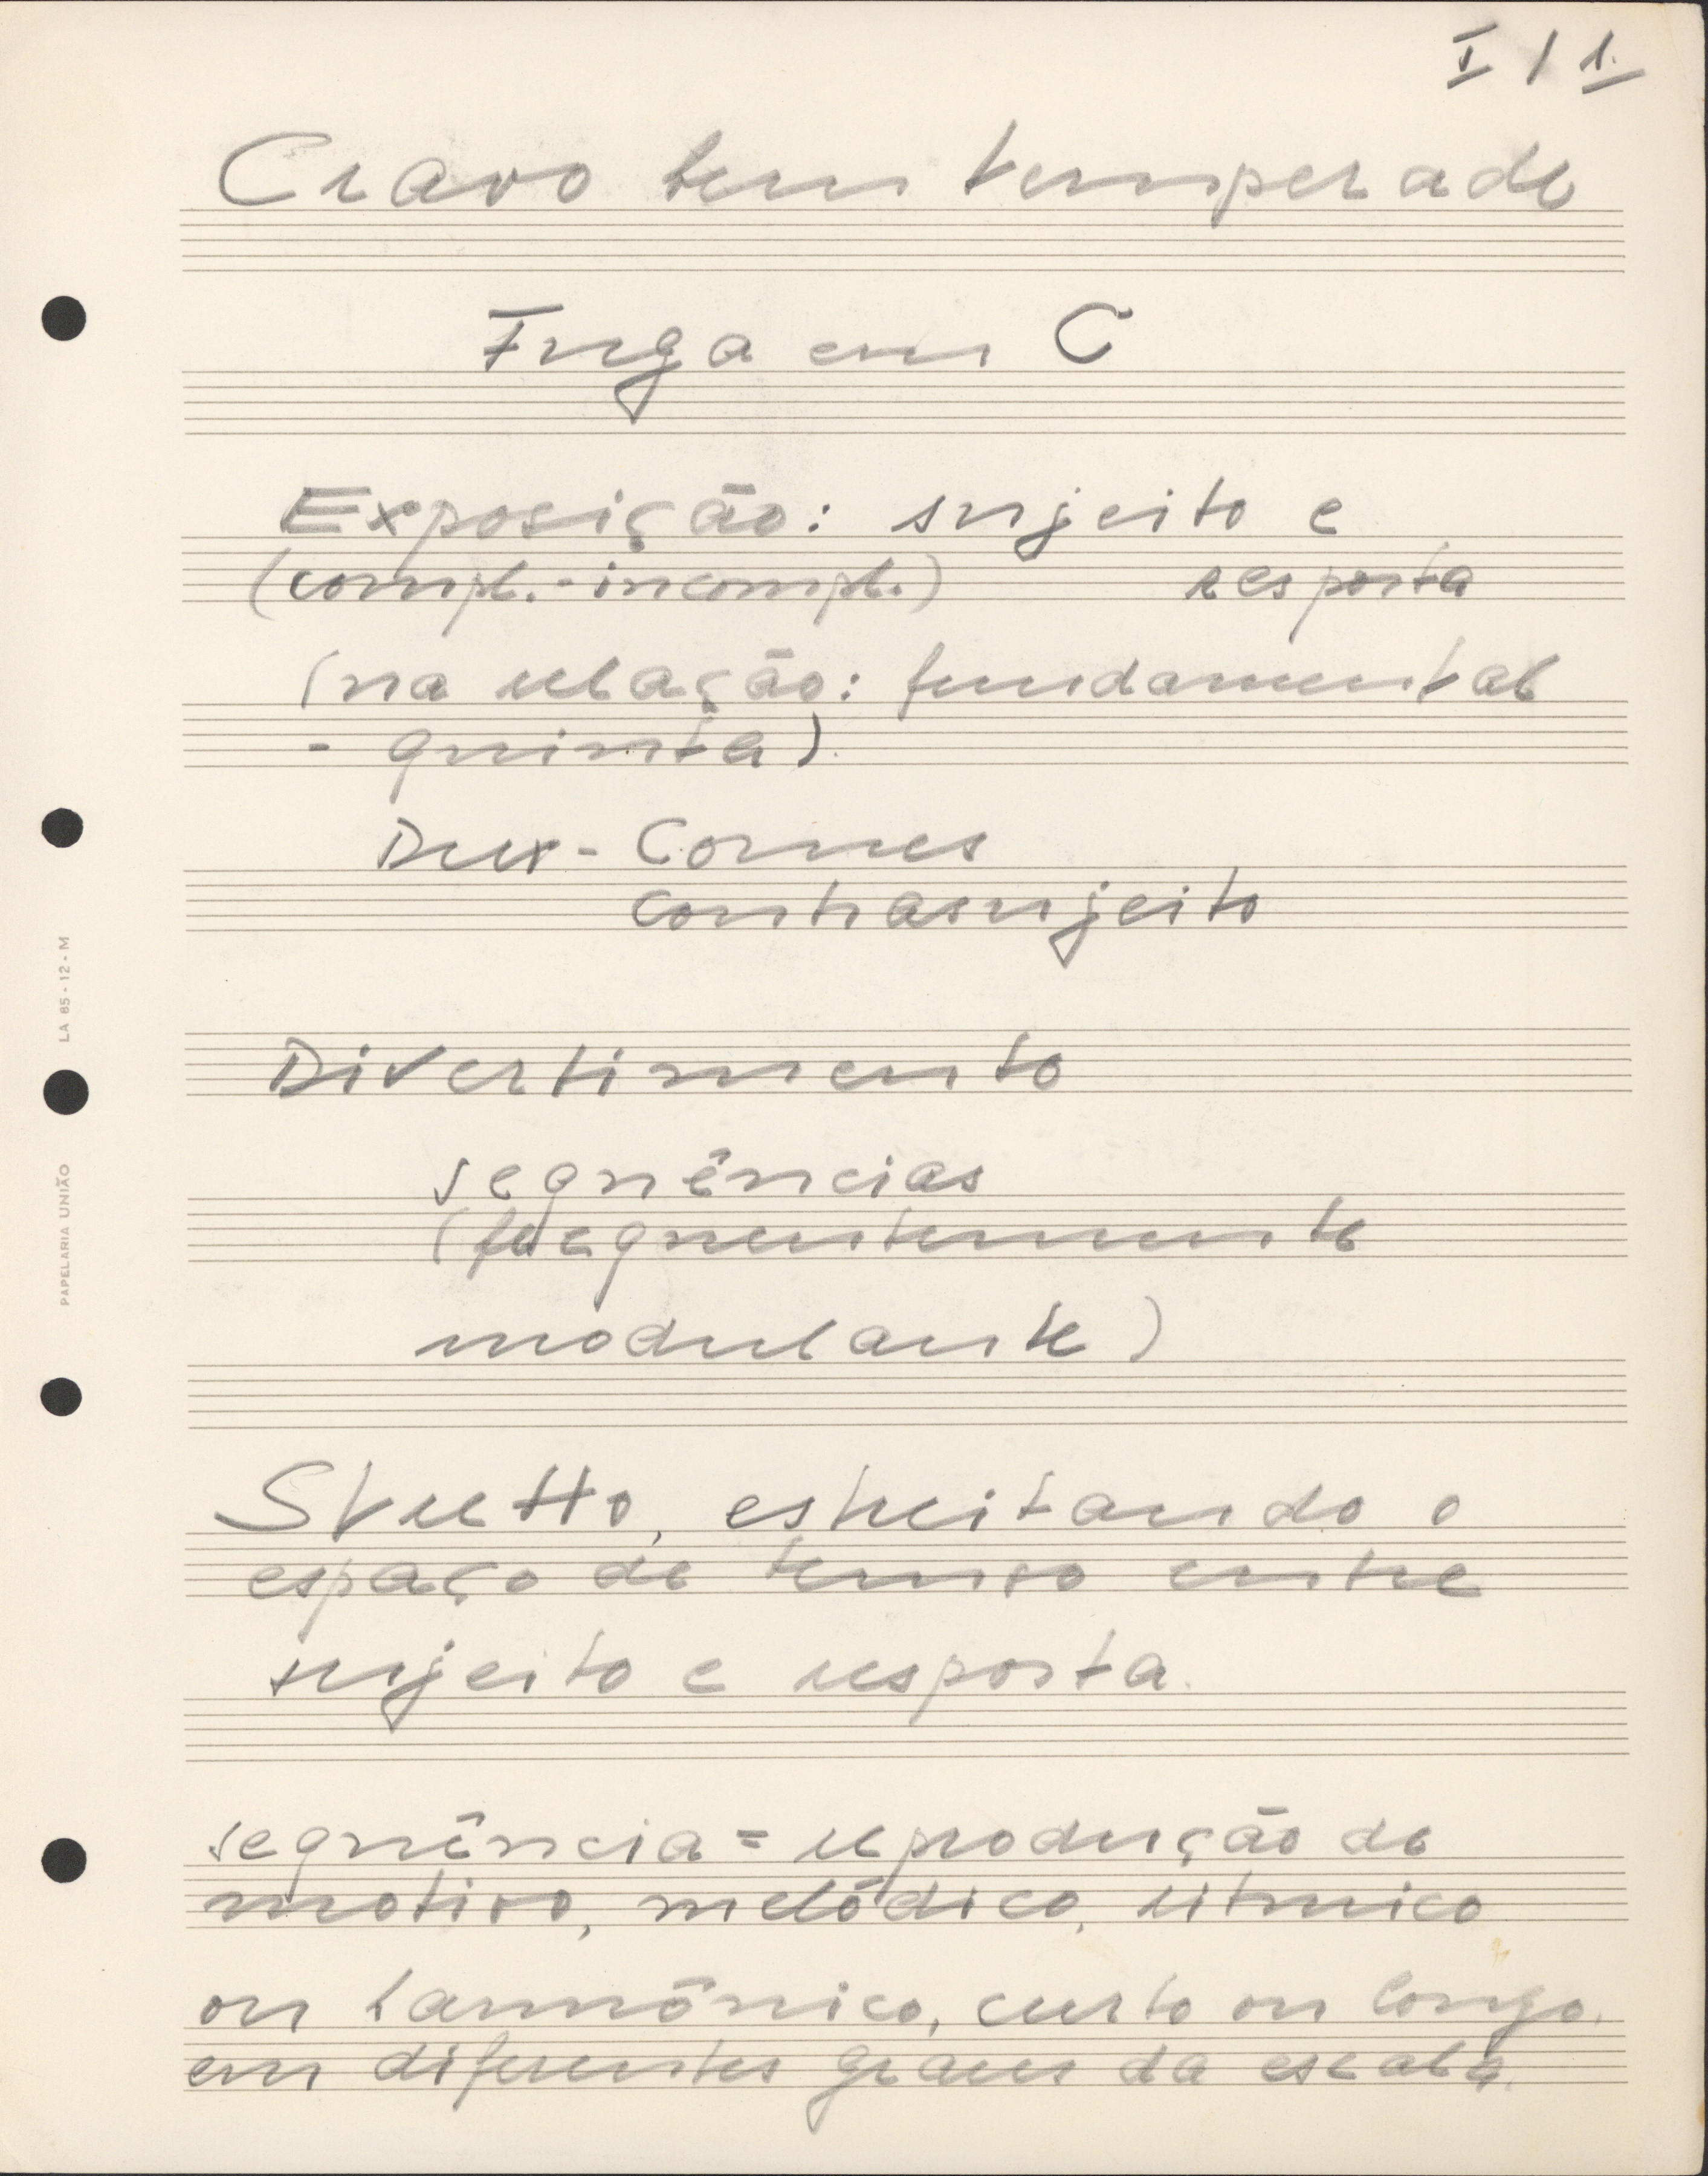 I / 1.
Cravo bem temperado
Fuga em C
Exposição: sujeito e
(compl.-incompl.) resposta
(na relação: fundamental
- quinta).
Dux - Comes
contrasujeito
Divertimento
sequências
(frequentemente
modulante)
Stretto, estreitando o
espaço de tempo entre
sujeito e resposta.
sequência = reprodução de
motivo, melódico, rítmico
ou harmônico, curto ou longo,
em diferentes graus da escala.
LA 65-12-M
PAPELARIA UNIÃO